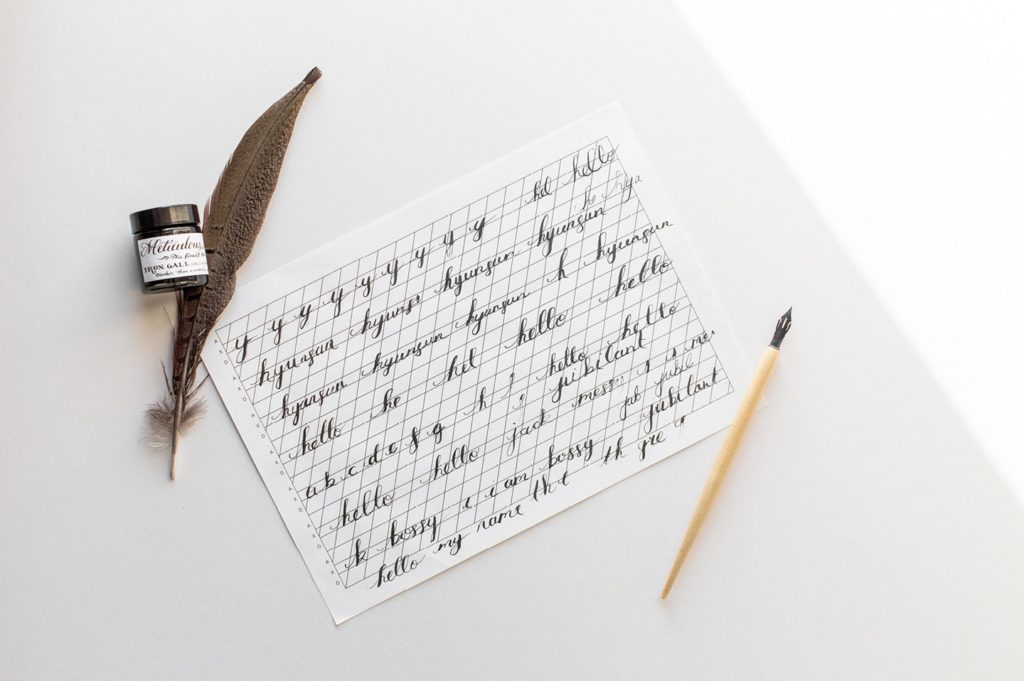 Meticulous
The finest
IRON GALL
y y y y y y y y hel hello
hyunsun hyuns hyunsun hyunsun
hyunsun hyunsun hyunsun h hyunsun
hello he hel hello hello
a b c d e f g h i hello hello
hello hello jack jubilant
b bossy i i am bossy jab jubil
hello my name the th jubilant